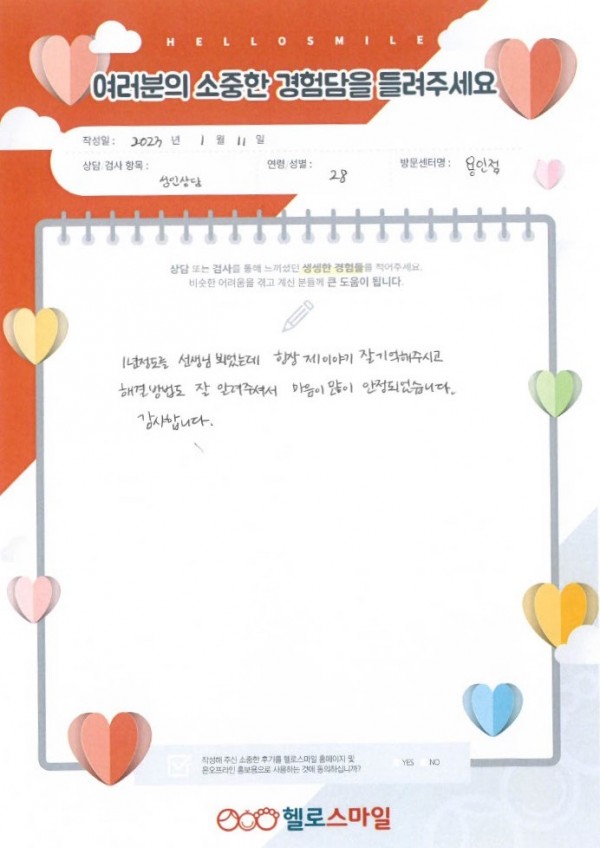 HELLOSMILE
여러분의 소중한 경험담을 들려주세요
작성일 : 2023 년 1 월 11 일
상담·검사 항목 : 성인상담 연령/성별 : 28 방문센터명 : 용인점
상담 또는 검사를 통해 느끼셨던 생생한 경험들을 적어주세요.
비슷한 어려움을 겪고 계신 분들께 큰 도움이 됩니다.
1년정도를 선생님 뵈었는데 항상 제 이야기 잘 기억해주시고
해결방법도 잘 알려주셔서 마음이 많이 안정되었습니다.
감사합니다.
작성해 주신 소중한 후기를 헬로스마일 홈페이지 및
온오프라인 홍보용으로 사용하는 것에 동의하십니까? YES NO
헬로스마일